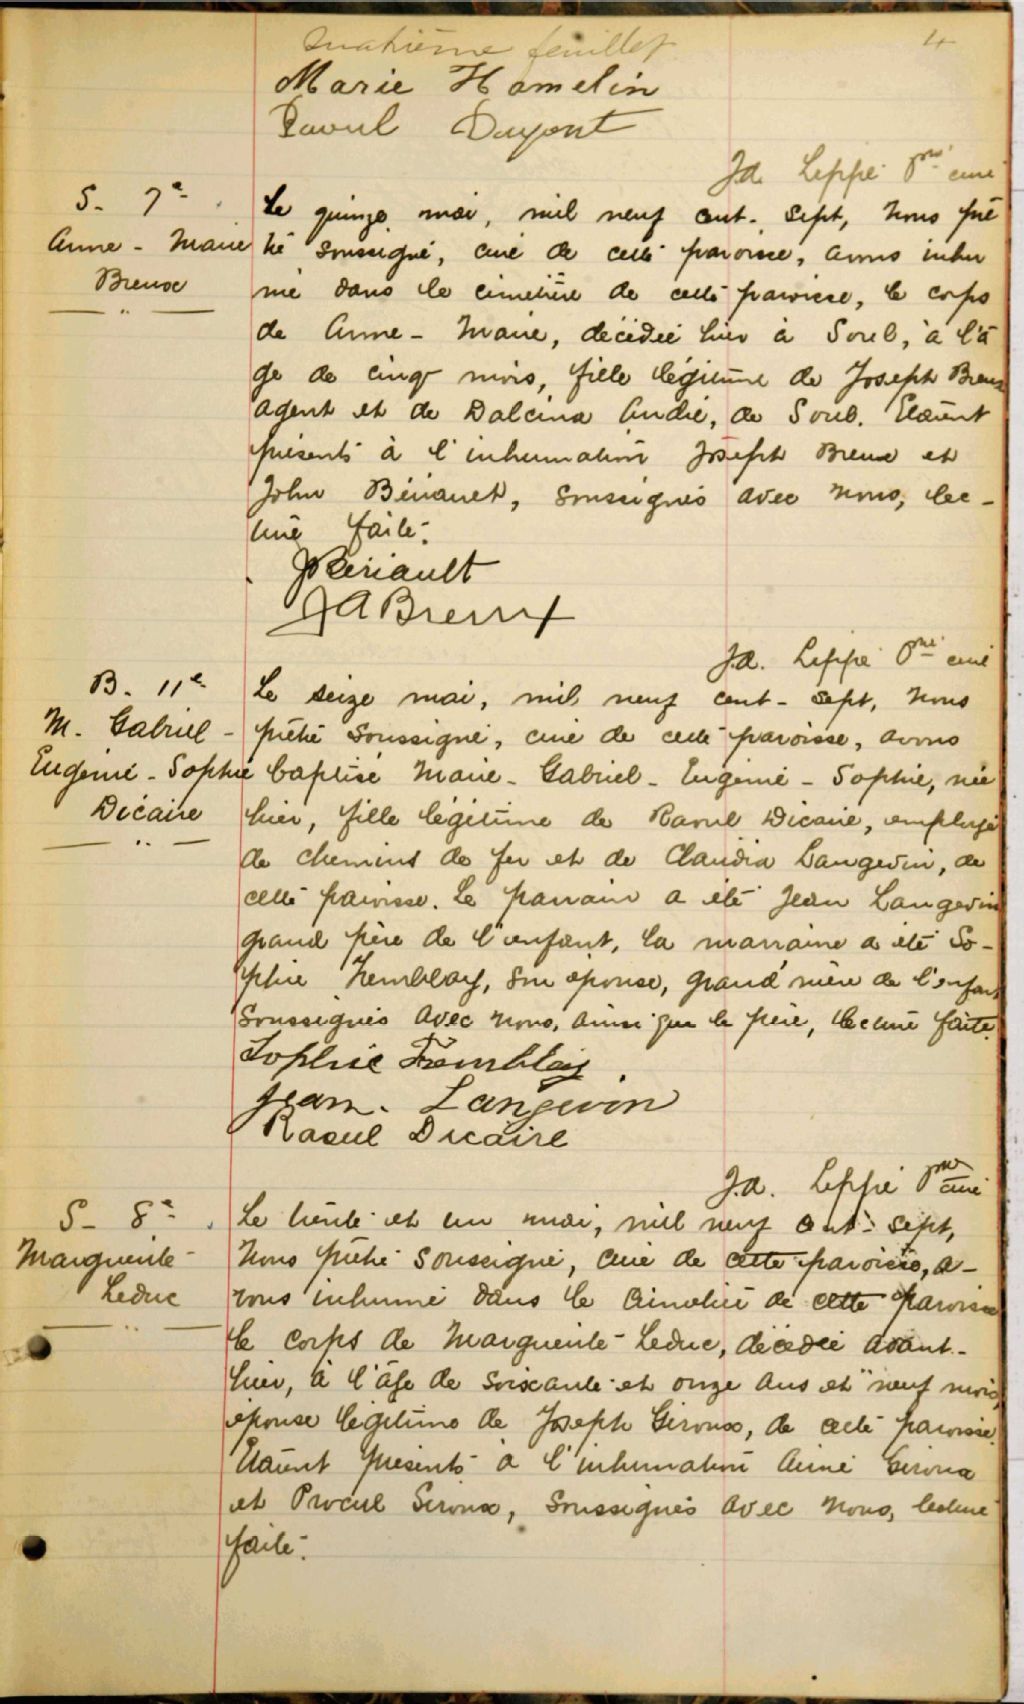 Quatrième feuillet 4
Marie Hamelin
Raoul Dupont
J.A. Leppé Ptre curé
S. 7e
Anne-Marie
Breux
Le quinze mai, mil neuf cent-sept, nous prê
tre soussigné, curé de cette paroisse, avons inhu
mé dans le cimetière de cette paroisse, le corps
de Anne-Marie, décédée hier à Sorel, à l'â
ge de cinq mois, fille légitime de Joseph Breux
agent et de Dalcina André, de Sorel. Etaient
présents à l'inhumation Joseph Breux et
John Bériault, soussignés avec nous, lec-
ture faite.
J Beriault
J A Breux
J.A. Leppé Ptre curé
B. 11e
M. Gabriel-
Eugénie-Sophie
Dicaire
Le seize mai, mil neuf cent-sept, nous
prêtre soussigné, curé de cette paroisse, avons
baptisé Marie-Gabriel-Eugénie-Sophie, née
hier, fille légitime de Raoul Dicaire, employé
de chemins de fer et de Claudia Langevin, de
cette paroisse. Le parrain a été Jean Langevin
grand père de l'enfant, la marraine a été So-
phie Tremblay, son épouse, grand'mère de l'enfant
soussignés avec nous, ainsi que le père, lecture faite.
Sophie Tremblay
Jean. Langevin
Raoul Dicaire
J.A. Leppé Ptre curé
S- 8e
Marguerite-
Leduc
Le trente et un mai, mil neuf cent-sept,
nous prêtre soussigné, curé de cette paroisse, a-
vons inhumé dans le cimetière de cette paroisse
le corps de Marguerite Leduc, décédée avant-
hier, à l'âge de soixante et onze ans et neuf mois,
épouse légitime de Joseph Giroux, de cette paroisse.
Etaient présents à l'inhumation Aimé Giroux
et Procul Giroux, soussignés avec nous, lecture
faite.